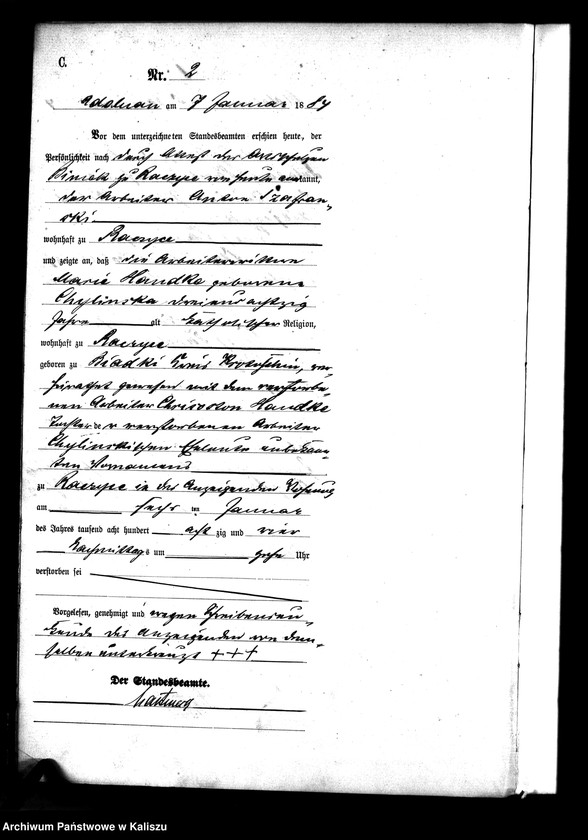 C.
Nr. 2
Adelnau am 7 Januar 1884
Vor dem unterzeichneten Standesbeamten erschien heute, der
Persönlichkeit nach durch Attest des Ortsschulzen
Biniek zu Raczyce von heute anerkannt,
der Arbeiter Anton Szafran-
ski
wohnhaft zu Raczyce
und zeigte an, daß die Arbeiterwittwe
Marie Handke geborene
Chylinska dreiundachtzig
Jahre alt katholischer Religion,
wohnhaft zu Raczyce
geboren zu Biadki Kreis Krotoschin, ver-
heirathet gewesen mit dem verstorbe-
nen Arbeiter Handke
Tochter der verstorbenen Arbeiter
Chylinskischen Eheleute unbekann-
ten Vornamens
zu Raczyce in des Anzeigenden Wohnung
am sechs ten Januar
des Jahres tausend acht hundert acht zig und vier
Nachmittags um Uhr
verstorben sei
Vorgelesen, genehmigt und wegen Schreibensun-
kunde des Anzeigenden von dem-
selben unterkreuzt +++
Der Standesbeamte.
Archiwum Państwowe w Kaliszu